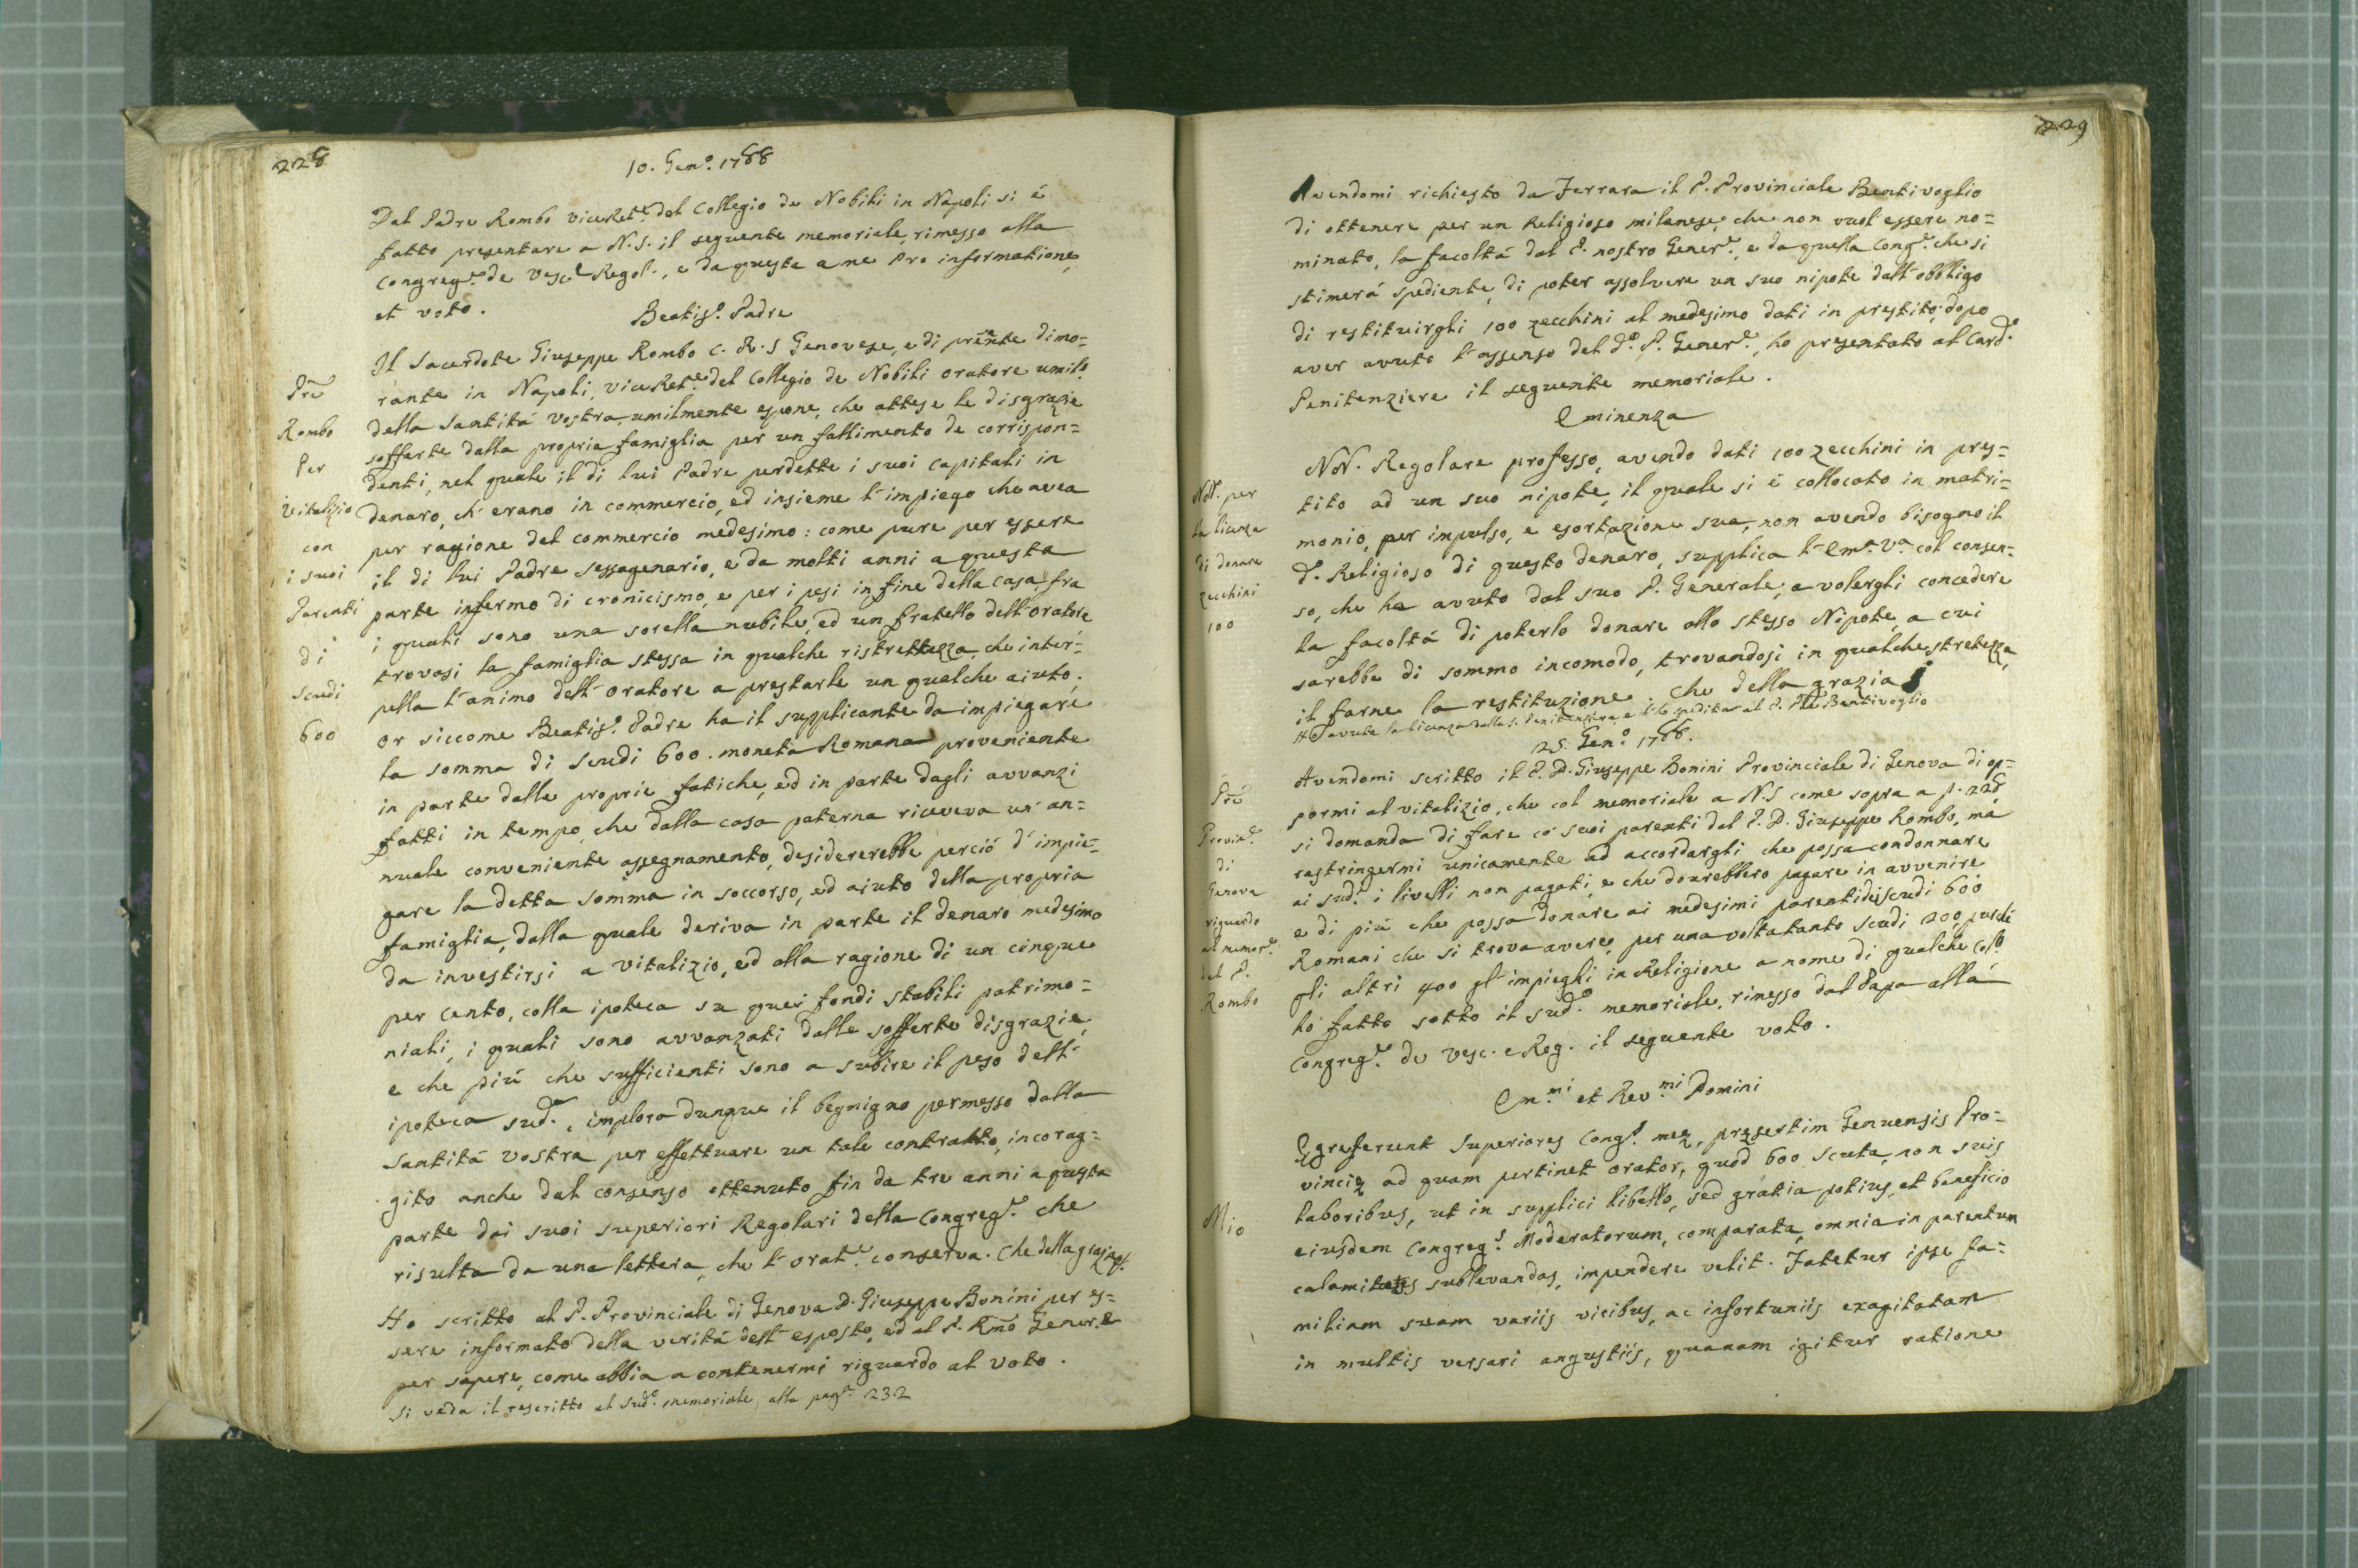 228
10. Gen.º 1768
Dal Padre Rombo ViceRet.e del Collegio de Nobili in Napoli si é
fatto presentare a N.S. il seguente memoriale, rimesso alla
Congreg.e de Vesc.i Regol., e da questa a me pro informatione,
et voto.
Beatis.º Padre
Il Sacerdote Giuseppe Rombo C. R. S Genovese, e di prēnte dimo=
rante in Napoli, ViceRet.e del Collegio de Nobili oratore umil.º
della Santitá Vostra, umilmente espone, che attese le disgrazie
sofferte dalla propria famiglia per un fallimento de corrispon=
denti, nel quale il di lui Padre perdette i suoi capitali in
denaro, ch'erano in commercio, ed insieme l'impiego che avea
per ragione del commercio medesimo: come pure per essere
il di lui Padre sessagenario, e da molti anni a questa
parte infermo di cronicismo, e per i pesi in fine della casa, fra
i quali sono una sorella nubile, ed un fratello dell'oratore
trovasi la famiglia stessa in qualche ristrettezza, che inter=
pella l'animo dell'oratore a prestarle un qualche aiuto;
or siccome Beatis.º Padre ha il supplicante da impiegare
la somma di scudi 600. moneta Romana proveniente
in parte dalle proprie fatiche, ed in parte dagli avvanzi
fatti in tempo, che dalla casa paterna riceveva un an=
nuale conveniente assegnamento, desidererebbe perció d'impie=
gare la detta somma in soccorso, ed aiuto della propria
famiglia, dalla quale deriva in parte il denaro medesimo
da investirsi a vitalizio, ed alla ragione di un cinque
per cento, colla ipoteca su quei fondi stabili patrimo=
niali, i quali sono avvanzati dalle sofferte disgrazie,
e che piú che sufficienti sono a subire il peso dell'
ipoteca sud.a, implora dunque il begnigno permesso dalla
Santitá Vostra per effettuare un tale contratto, incorag=
gito anche dal consenso ottenuto fin da tre anni a questa
parte dai suoi superiori Regolari della Congreg.e che
risulta da una lettera, che l'orat.e conserva. Che della grazia &
Ho scritto al P. Provinciale di Genova D. Giuseppe Bonini per es=
sere informato della veritá dell'esposto, ed al P. Rm̃o Gener.e
per sapere, come abbia a contenermi riguardo al voto.
Si veda il rescritto al sud.º memoriale, alla pag.e 232
Prē
Rombo
Per
vitalizio
con
i suoi
Parenti
di
scudi
600
229
Avendomi richiesto da Ferrara il P. Provinciale Bentivoglio
di ottenere per un Religioso milanese, che non vuol essere no=
minato, la facoltá dal P. nostro Gener.e, e da quella Cong.e che si
stimerá spediente, di poter assolvere un suo nipote dall'obbligo
di restituirgli 100 zecchini al medesimo dati in prestito; dopo
aver avuto l'assenso del d.º P. Gener.e, ho presentato al Card.e
Penitenziere il seguente memoriale.
Eminenza
NN. Regolare professo, avendo dati 100 zecchini in pres=
tito ad un suo nipote, il quale si é collocato in matri=
monio, per impulso, e esortazione sua, non avendo bisogno il
d.º Religioso di questo denaro, supplica l'Em.a V.a col consen=
so, che ha avuto dal suo P. Generale, a volergli concedere
la facoltá di poterlo donare allo stesso Nipote, a cui
sarebbe di sommo incomodo, trovandosi in qualche stretezza,
il farne la restituzione. Che della grazia
Ho avuta la licenza dalla S. Penitenziera, e l'ho spedita al P. Ple Bentivoglio
25. Gen.º 1768.
Avendomi scritto il P. D. Giuseppe Bonini Provinciale di Genova di op=
pormi al vitalizio, che col memoriale a N.S come sopra a p. 228
si domanda di fare co' suoi parenti dal P. D. Giuseppe Rombo, ma
rastringermi unicamente ad accordargli che possa condonnare
ai sud.i i livelli non pagati, e che dourebbero pagare in avvenire
e di piú che possa donare ai medesimi parenti di scudi 600
Romani che si trova avere, per una volta tanto scudi 200, purché
gli altri 400 gl'impieghi in Religione a nome di qualche Coll.º
hó fatto sotto il sud.º memoriale, rimesso dal Papa alla
Congreg.e de Vesc. e Reg. il seguente voto.
Em.mi et Rev.mi Domini
Egreferunt Superiores Cong.s meę, pręsertim Genuensis Pro=
vincię ad quam pertinet orator, quod 600 scuta, non suis
laboribus, ut in supplici libello, sed gratia potius, et beneficio
eiusdem Congreg.s Moderatorum, comparata, omnia in parentum
calamitates sublevandas, impendere velit. Fatetur ipse fa=
miliam suam variis vicibus, ac infortuniis exagitatam
in multis versari angustiis, quanam igitur ratione
NN. per
la licenza
di donare
zecchini
100
Prē
Provin.e
di
Genova
riguardo
al memor.e
del P.
Rombo
Mio